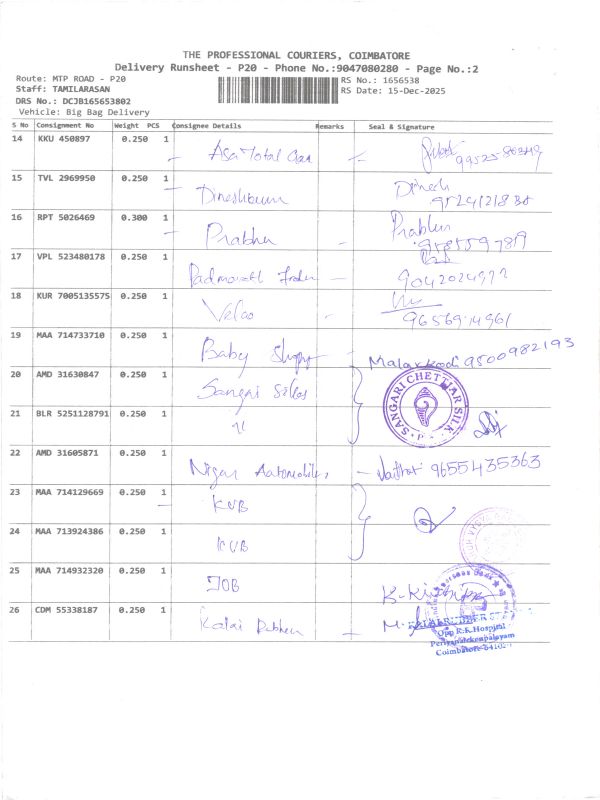 THE PROFESSIONAL COURIERS, COIMBATORE
Delivery Runsheet - P20 - Phone No.:9047080280 - Page No.:2
Route: MTP ROAD - P20
RS No.: 1656538
Staff: TAMILARASAN
RS Date: 15-Dec-2025
DRS No.: DCJB165653802
Vehicle: Big Bag Delivery
S No Consignment No Weight PCS Consignee Details Remarks Seal & Signature
14 KKU 450897 0.250 1
15 TVL 2969950 0.250 1 Dineshkumar Dinesh
16 RPT 5026469 0.300 1 Prabhu Prabhu
17 VPL 523480178 0.250 1
18 KUR 7005135575 0.250 1
19 MAA 714733710 0.250 1 Baby 9500982193
20 AMD 31630847 0.250 1 Sangari Silks SANGARI CHETTIAR SILK
21 BLR 5251128791 0.250 1 "
22 AMD 31605871 0.250 1 Nizar Automobiles 9655435363
23 MAA 714129669 0.250 1 KVB
24 MAA 713924386 0.250 1 KVB
25 MAA 714932320 0.250 1 IOB
26 CDM 55338187 0.250 1 Kalai
Opp R.K.Hospital
Coimbatore